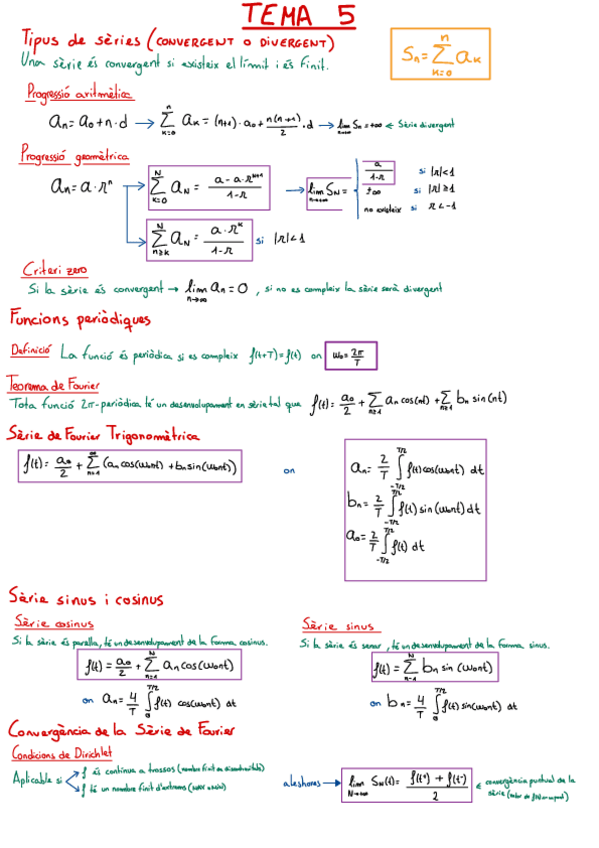 TEMA 5
Tipus de sèries (CONVERGENT O DIVERGENT)
Una sèrie és convergent si existeix el límit i és finit.
Sn = Σ_{k=0}^{n} ak
Progressió aritmètica
an = a0 + n·d → Σ_{k=0}^{n} ak = (n+1)·a0 + n(n+1)/2 ·d → lim_{n→∞} Sn = ±∞ ← Sèrie divergent
Progressió geomètrica
an = a·r^n → Σ_{k=0}^{N} aN = (a - a·r^{k+1})/(1-r) → lim_{n→∞} SN =
a/(1-r) si |r|<1
±∞ si |r|≥1
no existeix si r<-1
Σ_{n≥k}^{N} aN = (a·r^k)/(1-r) si |r|<1
Criteri zero
Si la sèrie és convergent → lim_{n→∞} an = 0, si no es compleix la sèrie serà divergent
Funcions periòdiques
Definició La funció és periòdica si es compleix f(t+T)=f(t) on w0 = 2π/T
Teorema de Fourier
Tota funció 2π-periòdica té un desenvolupament en sèrie tal que f(t) = a0/2 + Σ_{n≥1} an cos(nt) + Σ_{n≥1} bn sin(nt)
Sèrie de Fourier Trigonomètrica
f(t) = a0/2 + Σ_{n=1}^{∞} (an cos(w0nt) + bn sin(w0nt)) on
an = 2/T ∫_{-T/2}^{T/2} f(t) cos(w0nt) dt
bn = 2/T ∫_{-T/2}^{T/2} f(t) sin(w0nt) dt
a0 = 2/T ∫_{-T/2}^{T/2} f(t) dt
Sèrie sinus i cosinus
Sèrie cosinus
Si la sèrie és parella, té un desenvolupament de la forma cosinus.
f(t) = a0/2 + Σ_{n=1}^{N} an cos(w0nt)
on an = 4/T ∫_{0}^{T/2} f(t) cos(w0nt) dt
Sèrie sinus
Si la sèrie és senar, té un desenvolupament de la forma sinus.
f(t) = Σ_{n=1}^{N} bn sin(w0nt)
on bn = 4/T ∫_{0}^{T/2} f(t) sin(w0nt) dt
Convergència de la Sèrie de Fourier
Condicions de Dirichlet
Aplicable si
f és contínua a trossos (nombre finit de discontinuïtats)
f té un nombre finit d'extrems
aleshores → lim_{N→∞} SN(t) = (f(t+) + f(t-))/2
← convergència puntual de la
sèrie